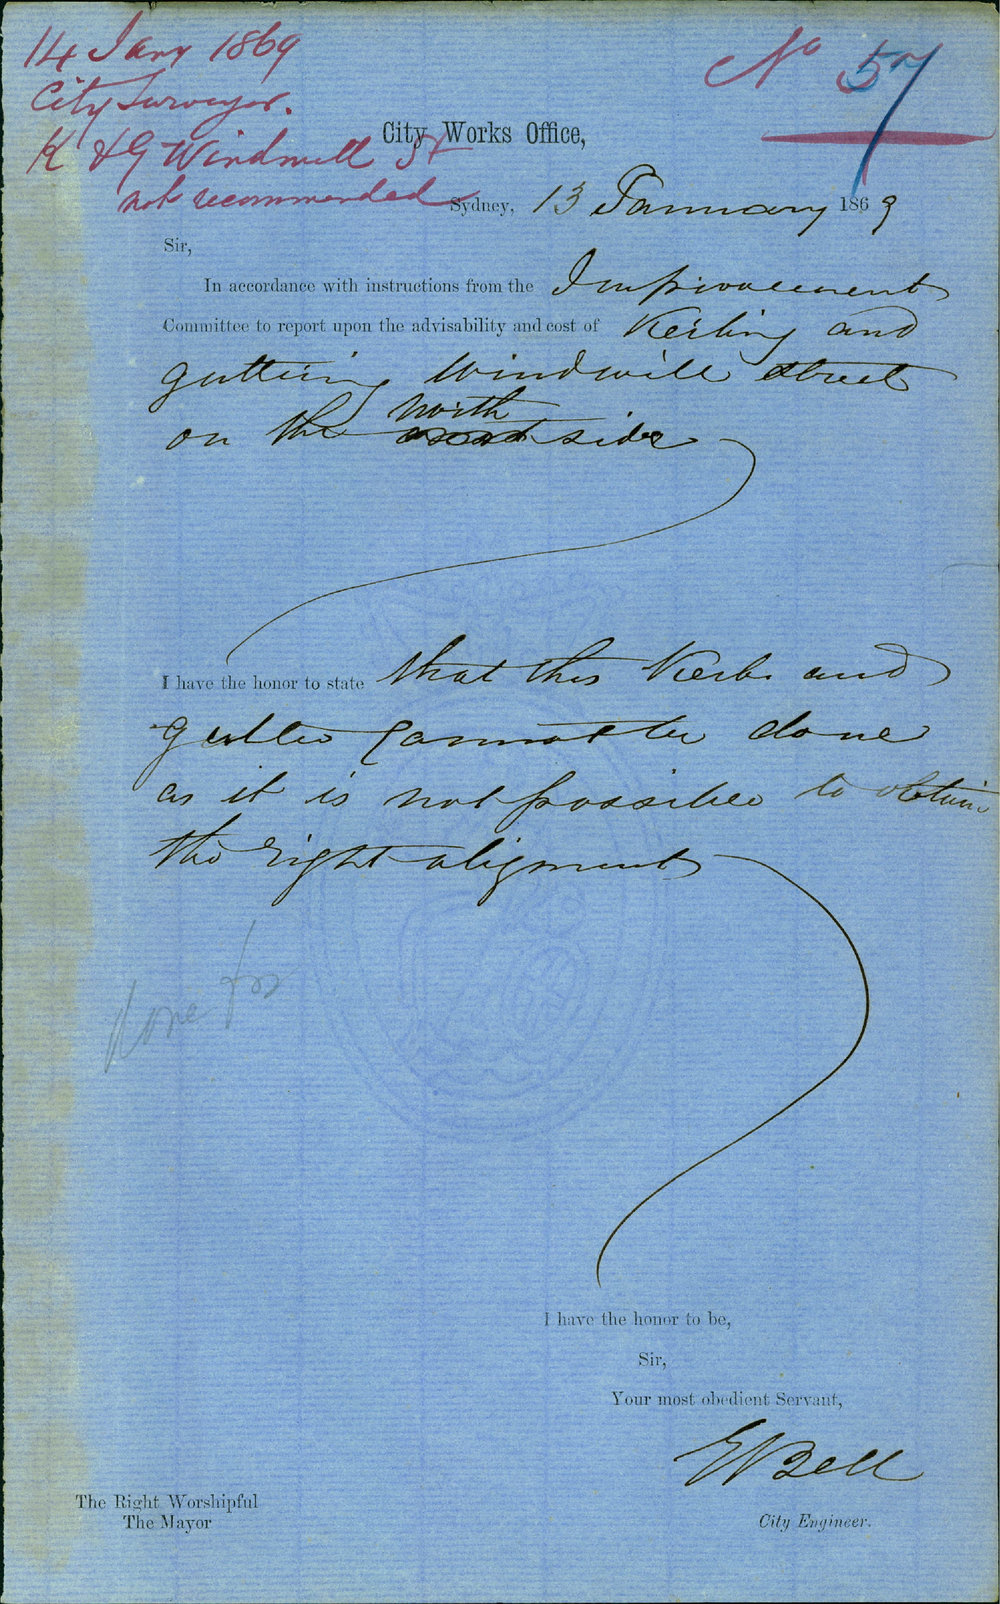 14 Jany 1869
City Surveyor.
K & G Windmill St
not recommended
No 57
City Works Office,
Sydney, 13 January 1869
Sir,
In accordance with instructions from the Improvement
Committee to report upon the advisability and cost of Kerbing and
guttering Windmill Street
on the north side
I have the honor to state that this Kerb and
gutter cannot be done
as it is not possible to obtain
the right aligment
done for
I have the honor to be,
Sir,
Your most obedient Servant,
E Bell
City Engineer.
The Right Worshipful
The Mayor